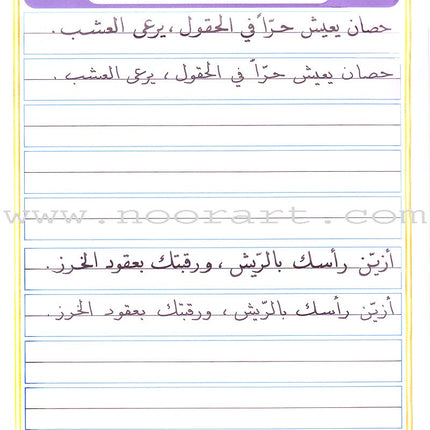 حصان يعيش حرّاً في الحقول ، يرعى العشب .
حصان يعيش حرّاً في الحقول ، يرعى العشب .
www.noorart.com
أزيّن رأسك بالرّيش ، ورقبتك بعقود الخرز .
أزيّن رأسك بالرّيش ، ورقبتك بعقود الخرز .